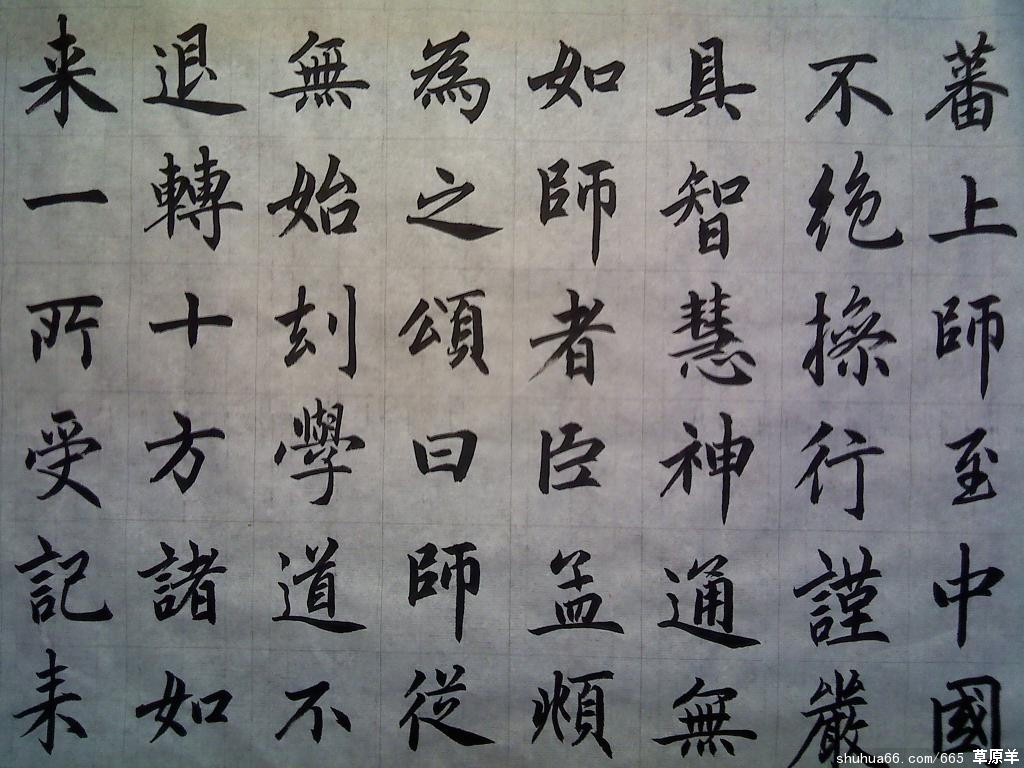 蕃上師至中國
不絕操行謹嚴
具智慧神通無
如師者臣孟頫
為之頌曰師從
無始刻學道不
退轉十方諸如
来一所受記来
shuhua66.com/665 草原羊